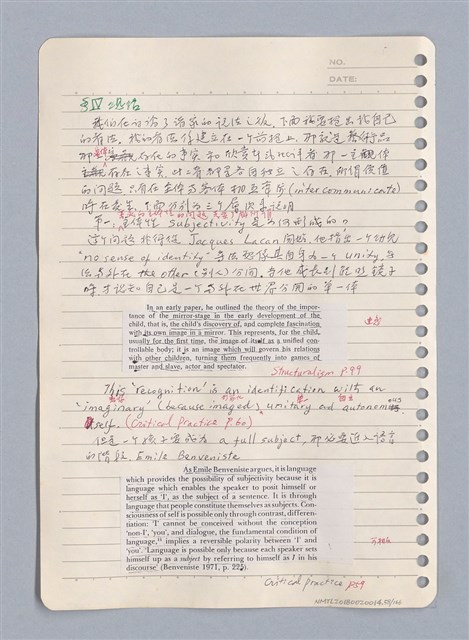 NO.
DATE:
第IV 總結
我們在討論了諸家的說法之後,下面我要提出我自己
的看法。我的看法係建立在一个前提上,那就是藝術品
存在的事實 和欣賞
主觀存在之事實,此二者都是各自獨立之存在,所謂價值
的問題 只有在主体与客体相互交流(inter communicate)
時在發生,下面分別為三个層次來說明
第一 主体性 Subjectivity 是如何形成的?
這个問題 Jacques Lacan 開始,他指出一个幼兒
"no sense of identity" 無法把係其自身為一个 unity,無
法与外在 the other (別人) 分開,
時才認知自己是一个与外在世界分開的單一体
In an early paper, he outlined the theory of the impor-
tance of the mirror-stage in the early development of the
child, that is, the child's discovery of, and complete fascination
with its own image in a mirror. This represents, for the child,
usually for the first time, the image of itself as a unified con-
trollable body; it is an image which will govern his relations
with other children, turning them frequently into games of
master and slave, actor and spectator.
Structuralism P.99
This 'recognition' is an identification with an
'imaginary' (because imaged), unitary and autonomous
self. (Critical Practice P.60)
但是一个孩子要成為 a full subject, 那必要進入語言
的階段 Emile Benveniste
As Emile Benveniste argues, it is language
which provides the possibility of subjectivity because it is
language which enables the speaker to posit himself or
herself as 'I', as the subject of a sentence. It is through
language that people constitute themselves as subjects. Con-
sciousness of self is possible only through contrast, differen-
tiation: 'I' cannot be conceived without the conception
'non-I', 'you', and dialogue, the fundamental condition of
language, implies a reversible polarity between 'I' and
'you'. 'Language is possible only because each speaker sets
himself up as a subject by referring to himself as I in his
discourse' (Benveniste 1971, p. 225).
Critical practice P.59
NMTL20180020014.01/146